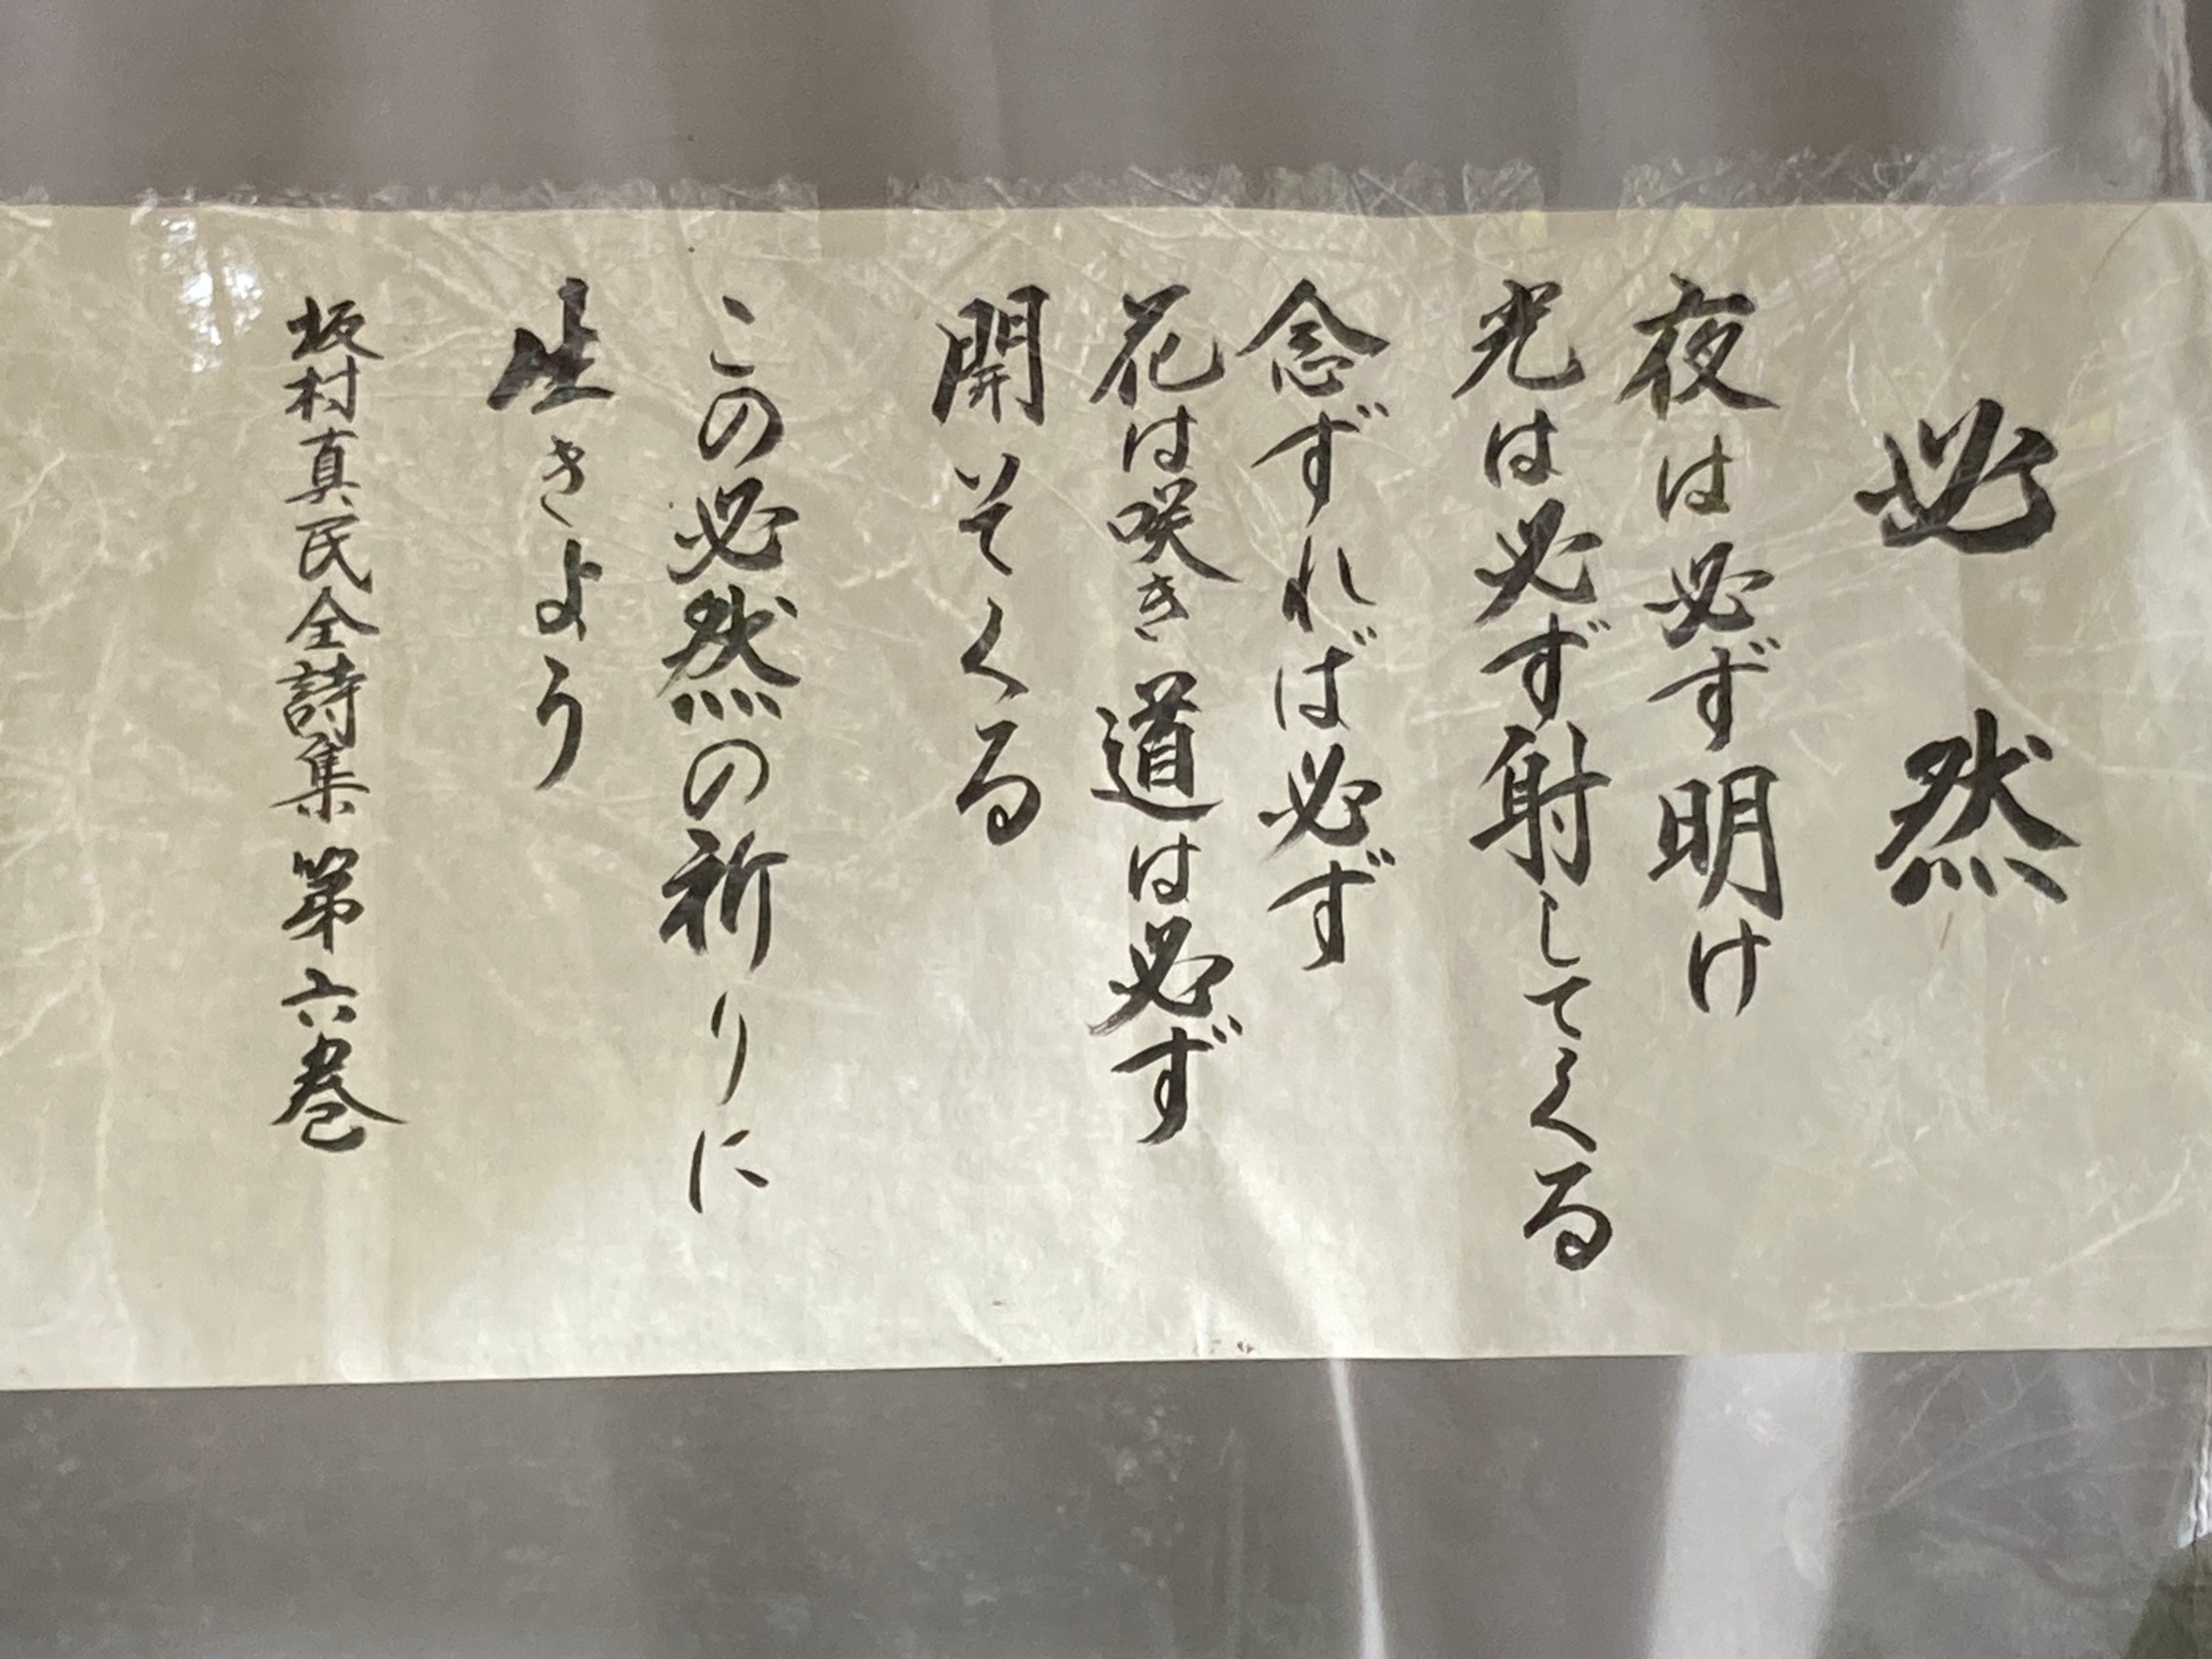 必然
夜は必ず明け
光は必ず射してくる
念ずれば必ず
花は咲き道は必ず
開いてくる
この必然の祈りに
生きよう
坂村真民全詩集第六巻